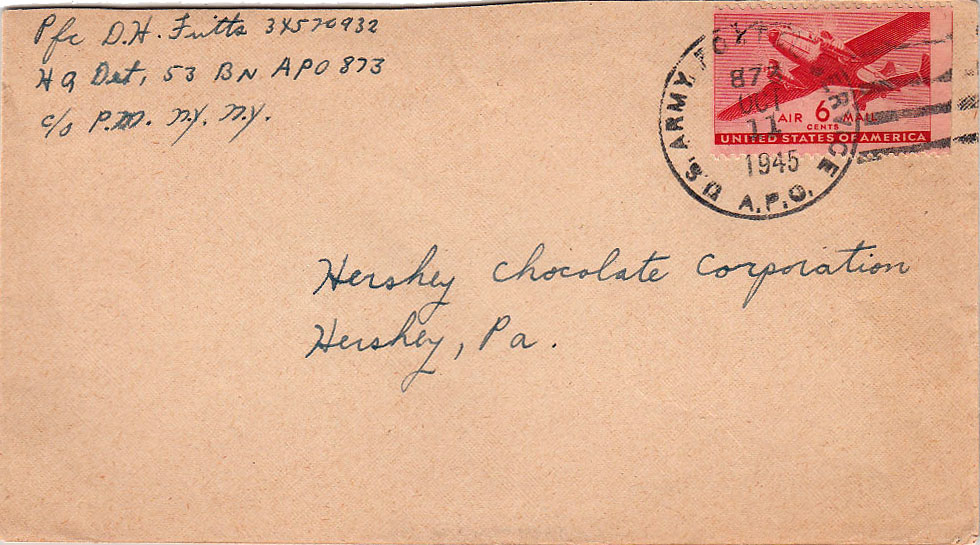 Pfc D.H. Fritts 34570932
HQ Det, 53 BN APO 873
c/o P.M. N.Y. N.Y.
U.S. ARMY POSTAL SERVICE
A.P.O.
873
OCT
11
1945
AIR 6 MAIL
CENTS
UNITED STATES OF AMERICA
Hershey Chocolate Corporation
Hershey, Pa.